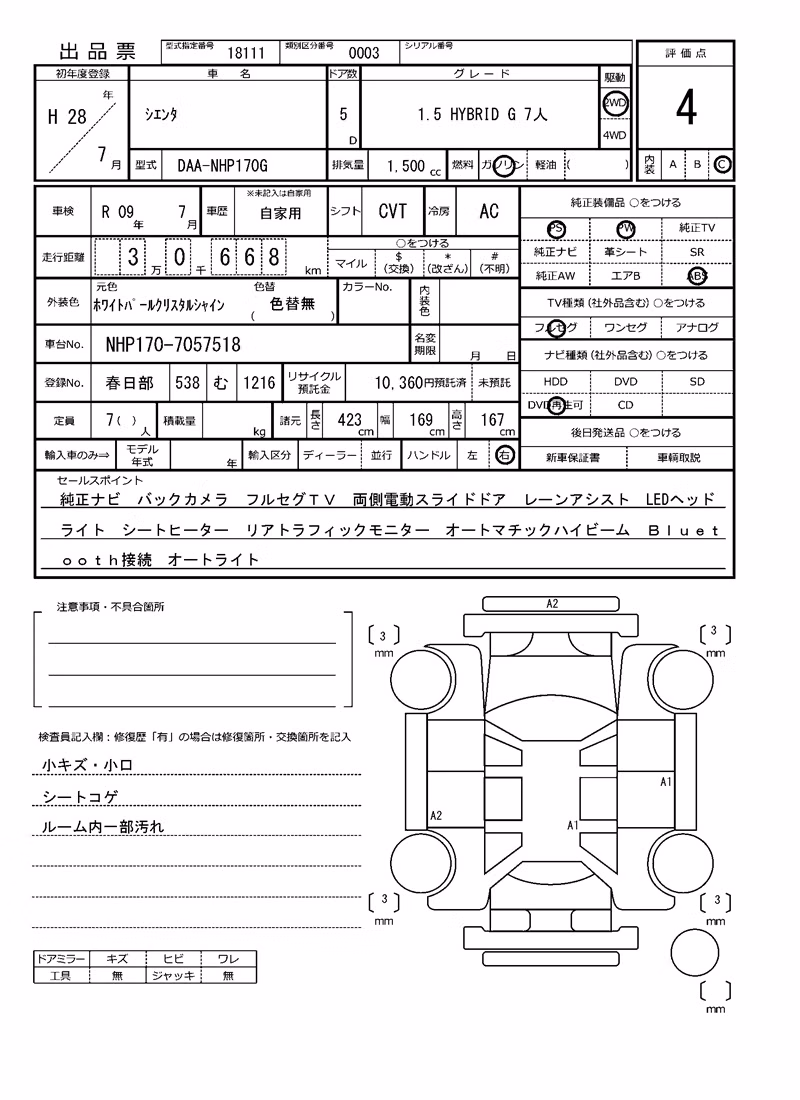 出品票 型式指定番号 18111 類別区分番号 0003 シリアル番号
評価点
4
内装 A B C
初年度登録 車名 ドア数 グレード 駆動
H 28 年 7 月 シエンタ 5 D 1.5 HYBRID G 7人 2WD 4WD
型式 DAA-NHP170G 排気量 1,500 cc 燃料 ガソリン 軽油 ( )
車検 R 09 年 7 月 車歴 ※未記入は自家用 自家用 シフト CVT 冷房 AC
走行距離 3 万 0 千 6 6 8 km
○をつける
マイル $(交換) *(改ざん) #(不明)
外装色 元色 ホワイトパールクリスタルシャイン 色替 ( 色替無 ) カラーNo. 内装色
車台No. NHP170-7057518 名変期限 月 日
登録No. 春日部 538 む 1216 リサイクル預託金 10,360円預託済 未預託
定員 7( )人 積載量 kg 諸元 長さ 423 cm 幅 169 cm 高さ 167 cm
輸入車のみ⇒ モデル年式 年 輸入区分 ディーラー 並行 ハンドル 左 右
純正装備品 ○をつける
PS PW 純正TV
純正ナビ 革シート SR
純正AW エアB ABS
TV種類(社外品含む)○をつける
フルセグ ワンセグ アナログ
ナビ種類(社外品含む)○をつける
HDD DVD SD
DVD再生可 CD
後日発送品 ○をつける
新車保証書 車輌取説
セールスポイント
純正ナビ バックカメラ フルセグTV 両側電動スライドドア レーンアシスト LEDヘッド
ライト シートヒーター リアトラフィックモニター オートマチックハイビーム Bluet
ooth接続 オートライト
注意事項・不具合箇所
検査員記入欄:修復歴「有」の場合は修復箇所・交換箇所を記入
小キズ・小凹
シートコゲ
ルーム内一部汚れ
ドアミラー キズ ヒビ ワレ
工具 無 ジャッキ 無
A2
[ 3 ] mm
[ 3 ] mm
A1
A2
A1
[ 3 ] mm
[ 3 ] mm
[ ] mm